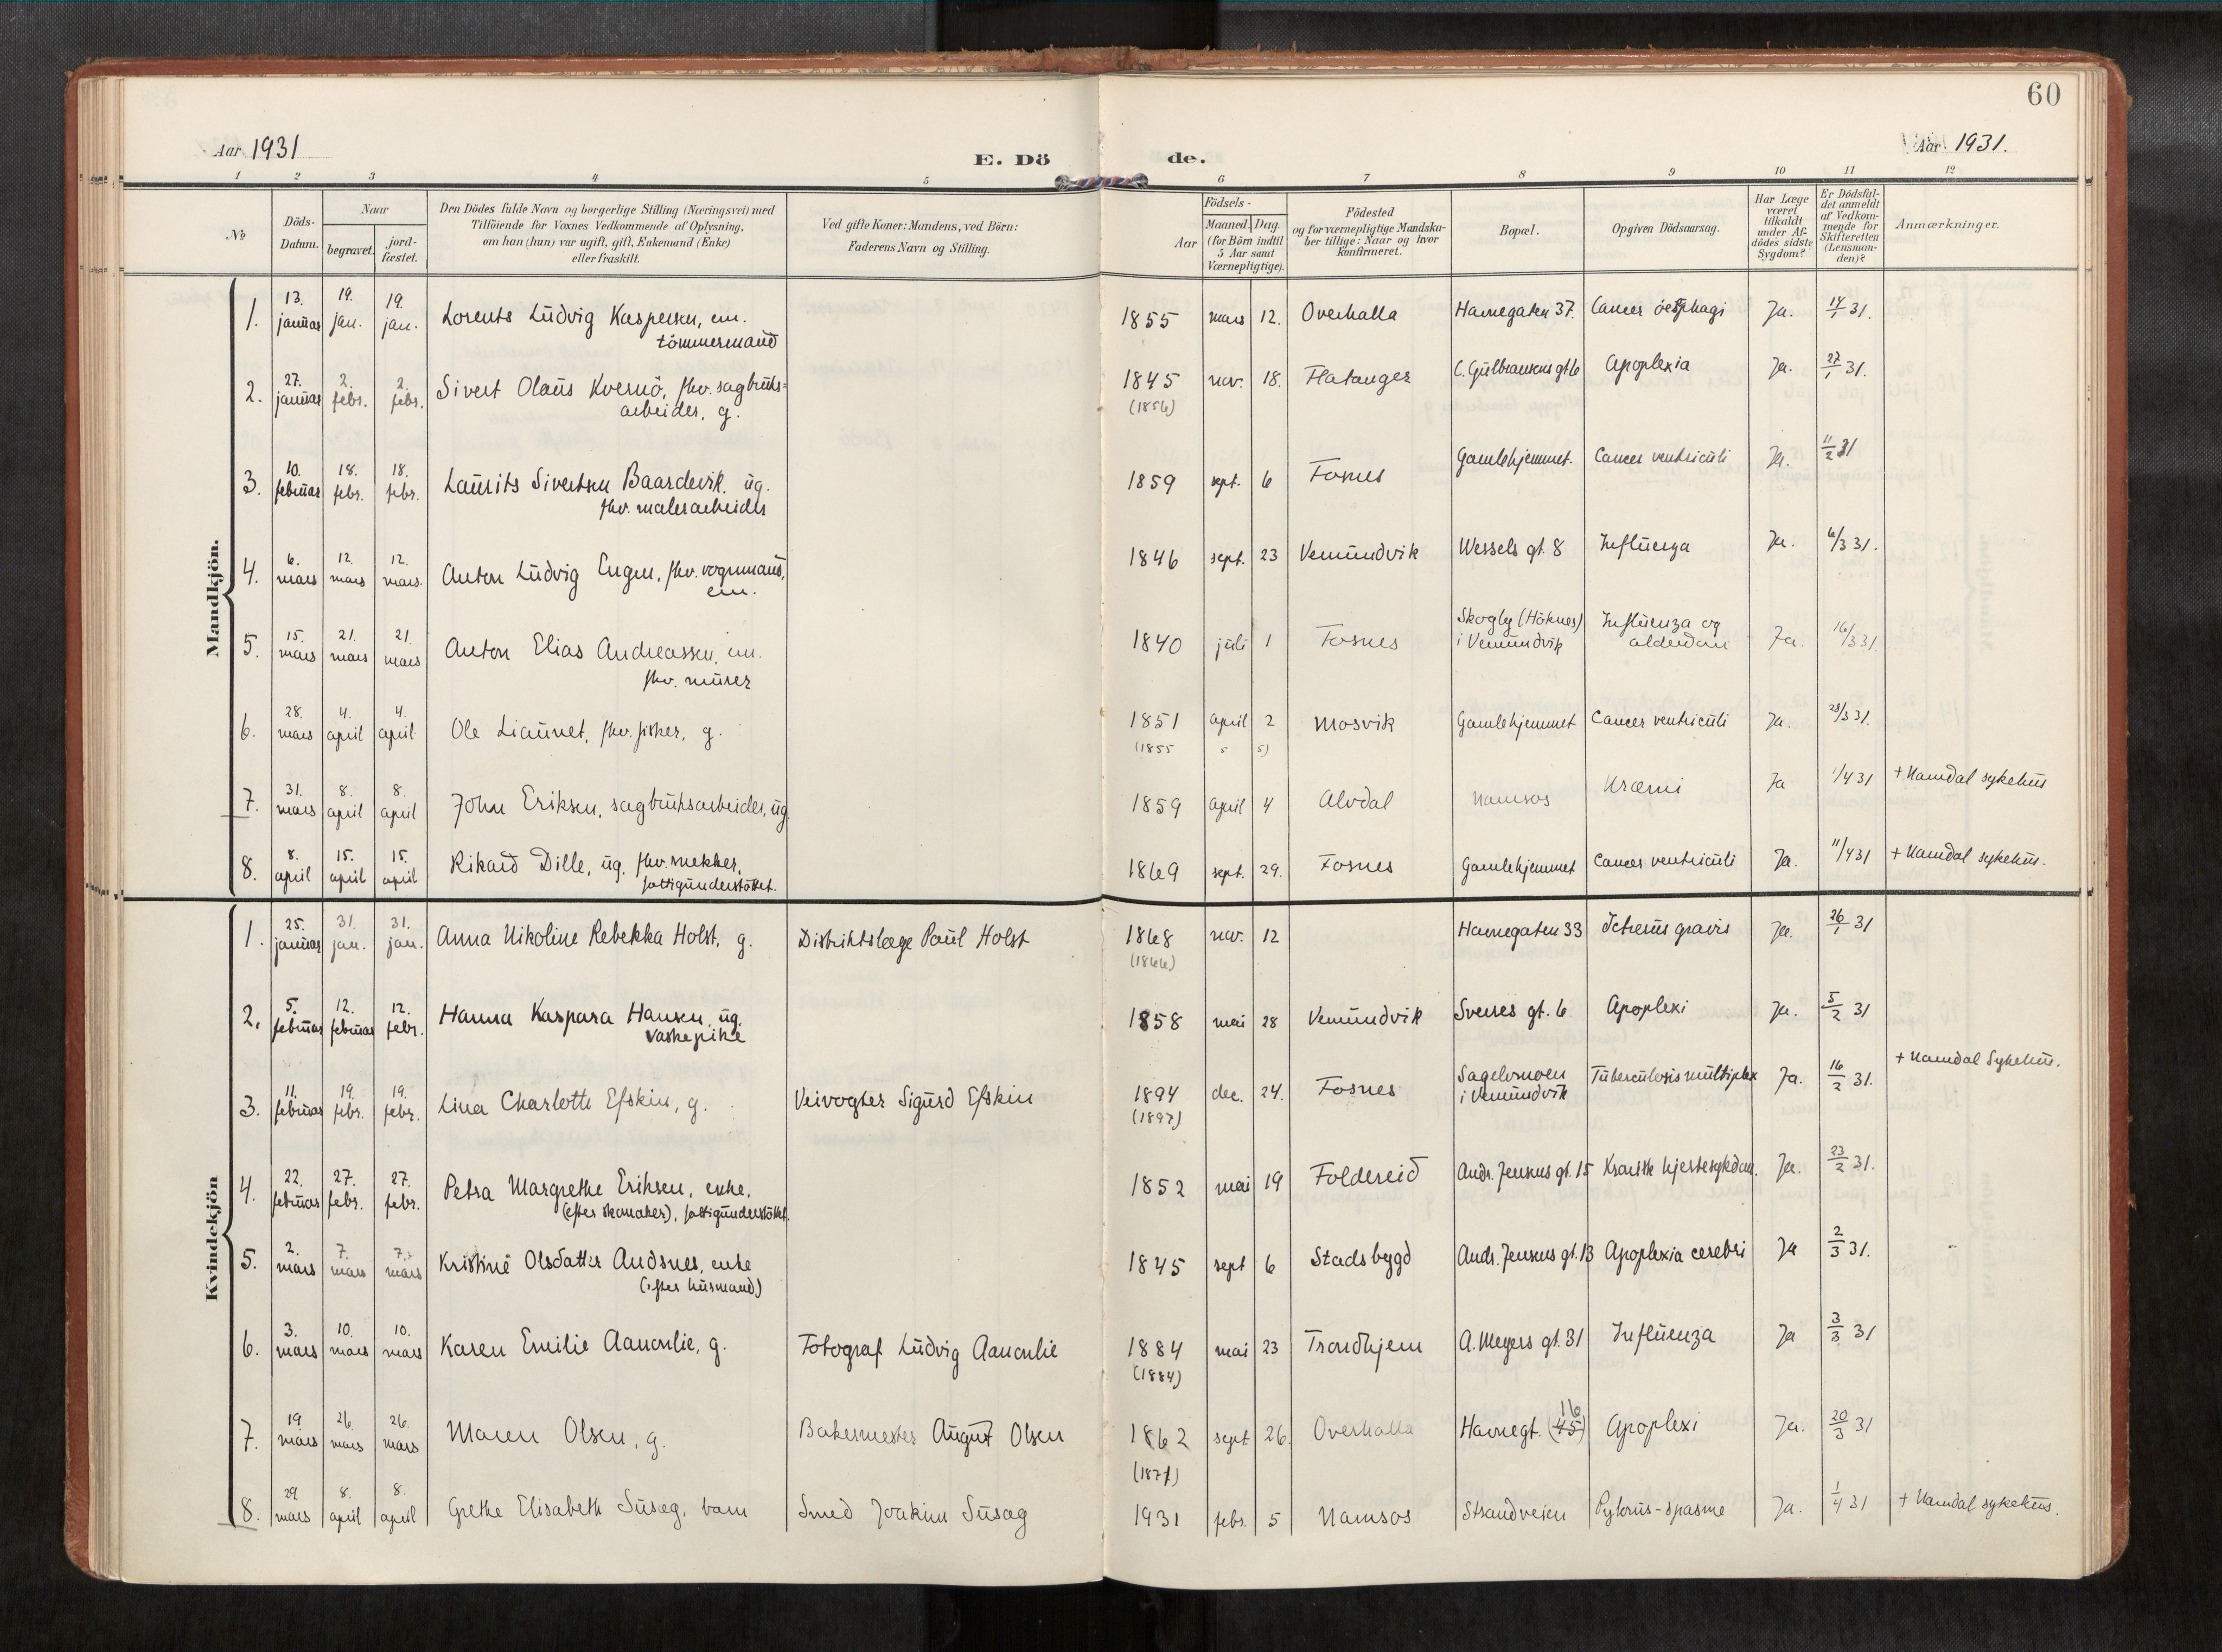 60
Aar 1931
E. Dö de.
Aar 1931.
1 2 3 4 5 6 7 8 9 10 11 12
№
Döds-
Datum.
Naar
begravet.
jord-
fæstet.
Den Dödes fulde Navn og borgerlige Stilling (Næringsvei) med
Tilföiende for Voxnes Vedkommende af Oplysning,
om han (hun) var ugift, gift, Enkemand (Enke)
eller fraskilt.
Ved gifte Koner: Mandens, ved Börn:
Faderens Navn og Stilling.
Födsels-
Aar
Maaned. Dag.
(for Börn indtil
5 Aar samt
Værnepligtige).
Födested
og for værnepligtige Mandska-
ber tillige: Naar og hvor
konfirmeret.
Bopæl.
Opgiven Dödsaarsag.
Har Læge
været
tilkaldt
under Af-
dödes sidste
Sygdom?
Er Dödsfal-
det anmeldt
af Vedkom-
mende for
Skifteretten
(Lensman-
den)?
Anmærkninger.
Mandkjön.
1. 13. januar 19. jan. 19. jan. Lorents Ludvig Kaspersen, em. 1855 mars 12. Overhalla Havnegaten 37. Cancer oesophagi Ja. 14/1 31.
tömmermand
2. 27. januar 2. febr. 2. febr. Sivert Olaus Kvernö, fhv. sagbruks= 1845 nov. 18. Flatanger C. Gulbransens gt 6 Apoplexia Ja. 27/1 31.
arbeider, g. (1856)
3. 10. februar 18. febr. 18. febr. Laurits Sivertsen Baardsvik, ug. 1859 sept. 6 Fosnes Gamlehjemmet. Cancer ventriculi Ja. 11/2 31
fhv. malerarbeider
4. 6. mars 12. mars 12. mars. Anton Ludvig Engen, fhv. vognmand, 1846 sept. 23 Vemundvik Wessels gt. 8 Influenza Ja. 6/3 31.
em.
5. 15. mars 21. mars 21. mars Anton Elias Andreassen, em. 1840 juli 1 Fosnes Skogly (Höknes) i Vemundvik Influenza og alderdom Ja. 16/3 31.
fhv. murer
6. 28. mars 4. april 4. april Ole Liaunet, fhv. fisker, g. 1851 april 2 Mosvik Gamlehjemmet Cancer ventriculi Ja. 28/3 31.
(1855 5 5)
7. 31. mars 8. april 8. april John Eriksen, sagbruksarbeider, ug 1859 april 4 Alvdal Namsos Uræmi Ja 1/4 31 + Namdal sykehus
8. 8. april 15. april 15. april Rikard Dille, ug. fhv. snekker, 1869 sept. 29. Fosnes Gamlehjemmet Cancer ventriculi Ja. 11/4 31 + Namdal sykehus.
fattigunderstöttet.
Kvindekjön
1. 25. januar 31. jan. 31. jan. Anna Nikoline Rebekka Holst, g. Distriktslæge Paul Holst 1868 nov. 12 Havnegaten 33 Icterus gravis Ja. 26/1 31
(1866)
2. 5. februar 12. februar 12. febr. Hanna Kaspara Hansen, ug. 1858 mai 28 Vemundvik Sverres gt. 6 Apoplexi Ja. 5/2 31
vaskepike
3. 11. februar 19. febr. 19. febr. Lina Charlotte Efskin, g. Veivogter Sigurd Efskin 1894 dec. 24. Fosnes Sagelvmoen i Vemundvik Tuberculosis multiplex Ja. 16/2 31. + Namdal Sykehus.
(1897)
4. 22. februar 27. febr. 27. febr. Petra Margrethe Eriksen, enke. 1852 mai 19 Foldereid Ands. Jensens gt. 15 Kronisk hjertesykdom. Ja. 23/2 31.
(efter skomaker), fattigunderstöttet.
5. 2. mars 7. mars 7. mars Kristine Olsdatter Andsnes, enke 1845 sept 6 Stadsbygd Ands. Jensens gt. 13 Apoplexia cerebri Ja 2/3 31.
(efter husmand)
6. 3. mars 10. mars 10. mars Karen Emilie Aanonlie, g. Fotograf Ludvig Aanonlie 1884 mai 23 Trondhjem A. Meyers gt. 31 Influenza Ja 3/3 31
(1884)
7. 19 mars 26. mars 26. mars Maren Olsen, g. Bakermester August Olsen 1862 sept 26. Overhalla Havnegt. (45) 16 Apoplexi Ja. 20/3 31
(1871)
8. 29 mars 8. april 8. april Grethe Elisabeth Susæg, barn Smed Joakim Susæg 1931 febr. 5 Namsos Strandveien Pylorus-spasme Ja. 1/4 31 + Namdal sykehus.